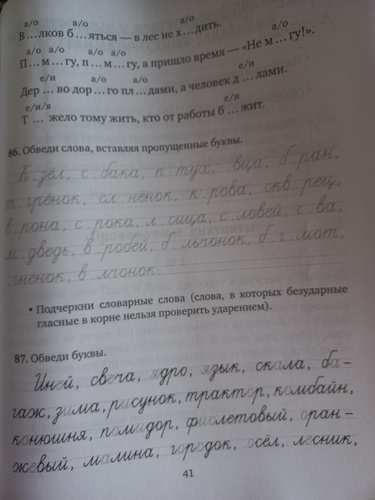 а/о а/о а/о
В...лков б ... яться — в лес не х...дить.
а/о а/о а/о а/о а/о
П...м...гу, п...м...гу, а пришло время — «Не м...гу!».
е/и а/о а/о е/и
Дер ... во дор ...го пл...дами, а человек д ... лами.
е/и/я е/и
Т ... жело тому жить, кто от работы б ... жит.
86. Обведи слова, вставляя пропущенные буквы.
К зёл, с бака, п тух, вца, б ран,
т грёнок, сл нёнок, к рова, скв рец,
в рона, с рока, л сица, с ловей, с ва,
м дведь, в робей, б льчонок, б г мот,
гнёнок, в лчонок.
• Подчеркни словарные слова (слова, в которых безударные
гласные в корне нельзя проверить ударением).
87. Обведи буквы.
Иней, свеча, ядро, язык, скала, ба-
гаж, зима, рисунок, трактор, комбайн,
конюшня, помидор, фиолетовый, оран-
жевый, малина, городок, осёл, лесник,
41